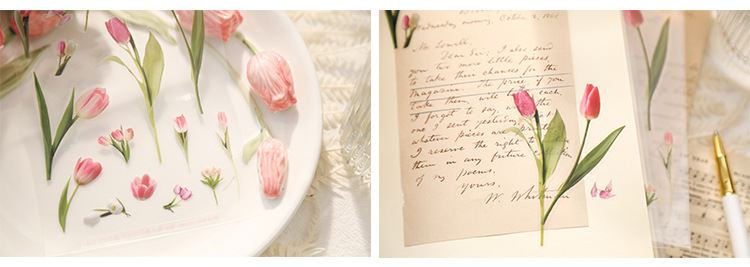 Wednesday morning, Octbr 2, 1861
Mr. Lowell,
Dear Sir, I also send
you two more little pieces,
to take their chances for the
magazine. The price if you
take them, will be each.
I forgot to say, the
one I sent yesterday
whatever pieces are
I reserve the right to
them in any future
of my poems.
Yours,
W. Whitman